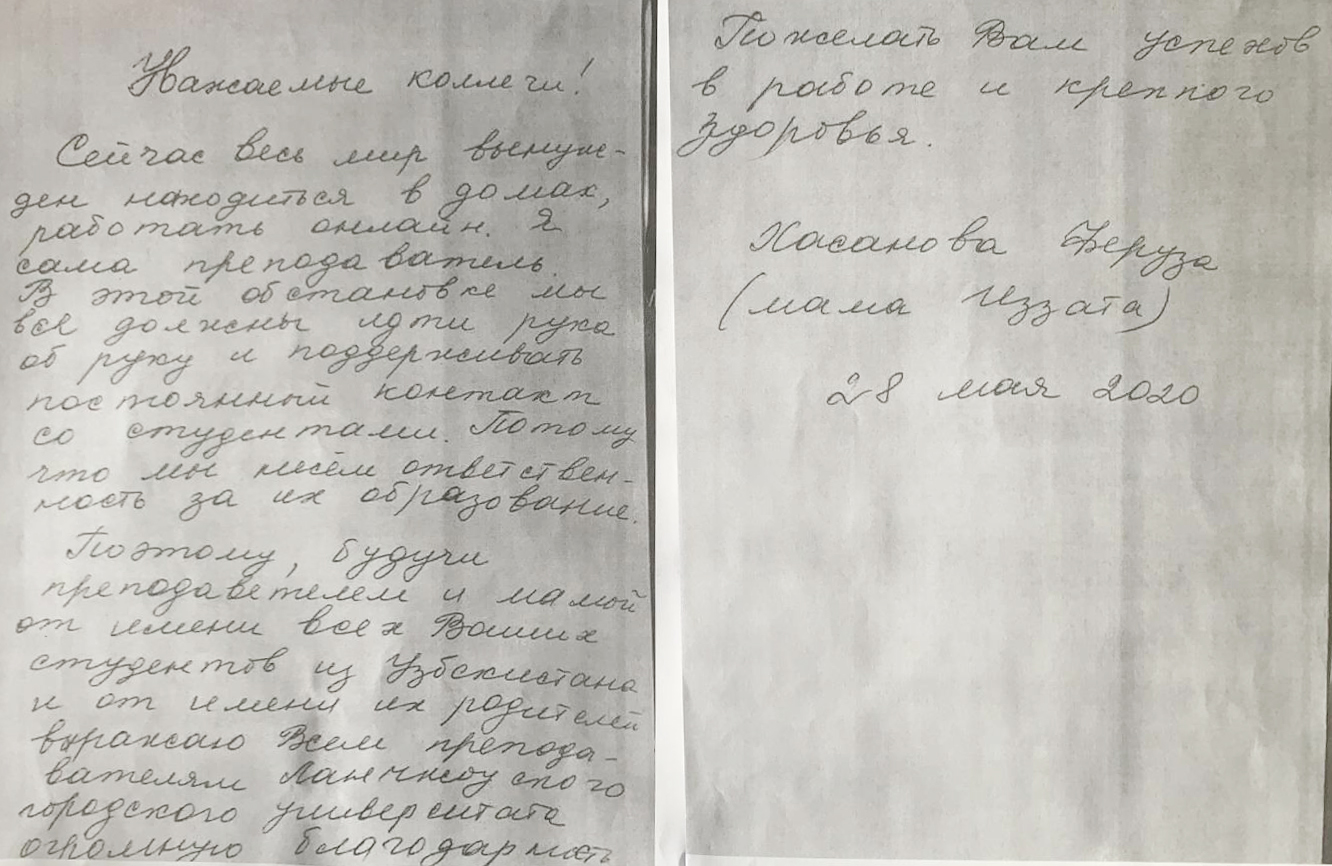 Уважаемые коллеги!
Сейчас весь мир вынуж-
ден находиться в домах,
работать онлайн. Я
сама преподаватель.
В этой обстановке мы
все должны идти рука
об руку и поддерживать
постоянный контакт
со студентами. Потому
что мы несём ответствен-
ность за их образование.
Поэтому, будучи
преподавателем и мамой
от имени всех Ваших
студентов из Узбекистана
и от имени их родителей
выражаю Всем препода-
вателям Ланчжоуского
городского университета
огромную благодарность
Пожелать Вам успехов
в работе и крепкого
здоровья.
Хасанова Феруза
(мама Иззата)
28 мая 2020